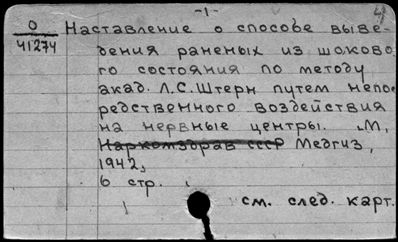 -1-
4
О
41274
Наставление о способе выве-
дения раненых из шоково
го состояния по методу
акад. Л.С. Штерн путем непос
редственного воздействия
на нервные центры. М,
Наркомздрав СССР Медгиз,
1942,
6 стр.
см. след. карт.